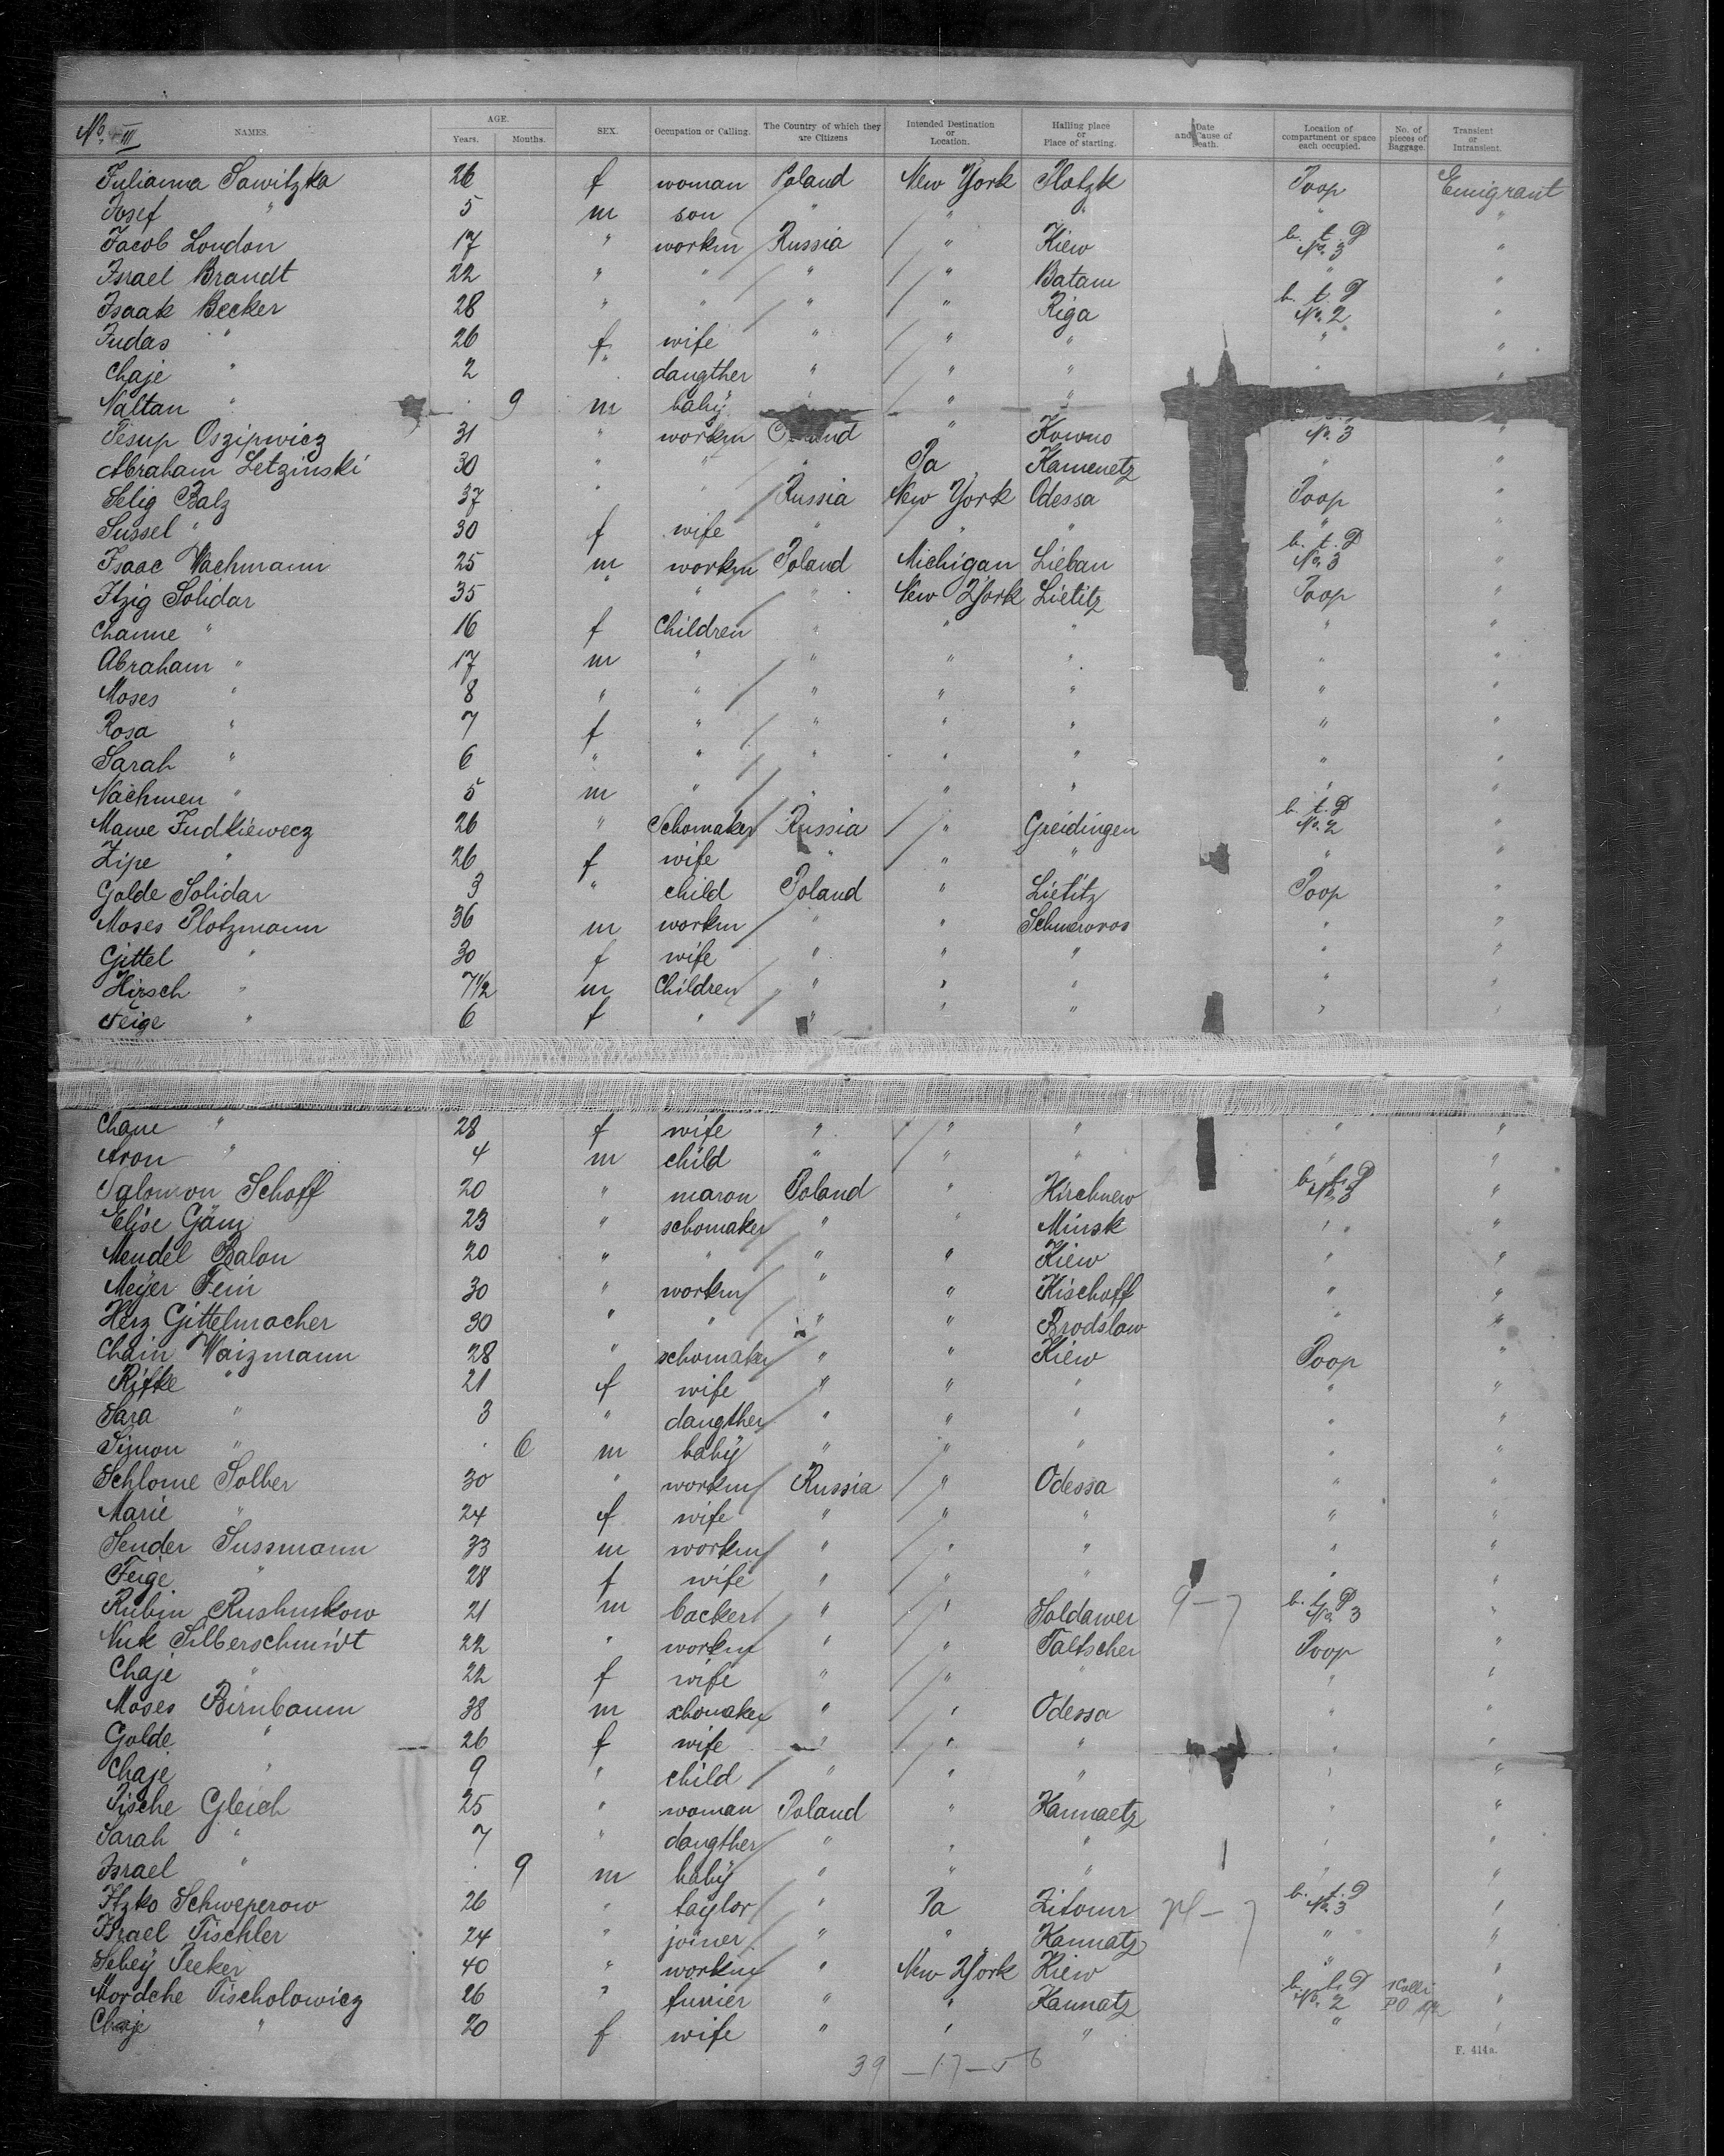 No. III
NAMES. AGE. Years. Months. SEX. Occupation or Calling. The Country of which they are Citizens Intended Destination or Location. Halling place or Place of starting. Date and Cause of Death. Location of compartment or space each occupied. No. of pieces of Baggage. Transient or Intransient.
Julianna Sawitzka 26 f woman Poland New York Plotzk Poop Emigrant
Josef " 5 m son " " " " "
Jacob London 17 " workm Russia " Kiew b. t. D No. 3 "
Israel Brandt 22 " " " " Batam " "
Isaak Becker 28 " " " " Riga b. t. D No. 2 "
Judas " 26 f wife " " " " "
Chaje " 2 " dangther " " " " "
Naltan " 9 m baby " "
31 " workm " Kowno No. 3 "
Abraham Letzinski 30 " " " Pa Kamenetz " "
Selig Balz 37 " " Russia New York Odessa Poop "
Sussel " 30 f wife " " " " "
Isaac Wachmann 25 m workm Poland Michigan Lieban b. t. D No. 3 "
Itzig Solidar 35 " " " New York Lietitz Poop "
Channe " 16 f Children " " " " "
Abraham " 17 m " " " " " "
Moses " 8 " " " " " " "
Rosa " 7 f " " " " " "
Sarah " 6 " " " " " " "
Nachmen " 5 m " " " " " "
Mawe Judkiewecz 26 " Schomaker Russia " Greidingen b. t. D No. 2 "
Zipe " 26 f wife " " " " "
Golde Solidar 3 " child Poland " Lietitz Poop "
Moses Plotzmann 36 m workm " " "
Gittel " 30 f wife " " " " "
Hirsch " 7 1/2 m Children " " " " "
Feige " 6 f " " " " " "
Chane " 28 f wife " " " " "
Aron " 4 m child " " " " "
Salomon Schoff 20 " maron Poland " Kirchnew b. t. D No. 3 "
Elise 23 " schomaker " " Minsk " "
Mendel Balon 20 " " " " Kiew " "
Meyer Fein 30 " workm " " Kischoff " "
Herz Gittelmacher 30 " " " " Brodslaw " "
Chaim Waizmann 28 " schomaker " " Kiew Poop "
Rifke " 21 f wife " " " " "
Sara " 3 " dangther " " " " "
Simon " 6 m baby " " " " "
Schlome Solber 30 " workm Russia " Odessa " "
Marie " 24 f wife " " " " "
Sender Sussmann 33 m workm " " " " "
Feige " 28 f wife " " " " "
Rubin Rushukow 21 m backer " " Soldawer 9 – 7 b. t. D No. 3 "
Silberschmidt 22 " workm " " Taltscher Poop "
Chaje " 22 f wife " " " " "
Moses Birnbaum 38 m schomaker " " Odessa " "
Golde " 26 f wife " " " " "
Chaje " 9 " child " " " " "
Pische Gleich 25 " woman Poland " Kannaetz " "
Sarah " 7 " dangther " " " " "
Israel " 9 m baby " " " " "
Itzko Schweperow 26 " taylor " Pa Zitomr b. t. D No. 3 "
Israel Tischler 24 " joiner " " Kannatz " "
Sebey Pecker 40 " workm " New York Kiew " "
Mordche Tischolowicz 26 " furrier " " Kannatz b. t. D No. 2 "
Chaje " 20 f wife " " " " "
39 – 17 – 56
F. 414a.